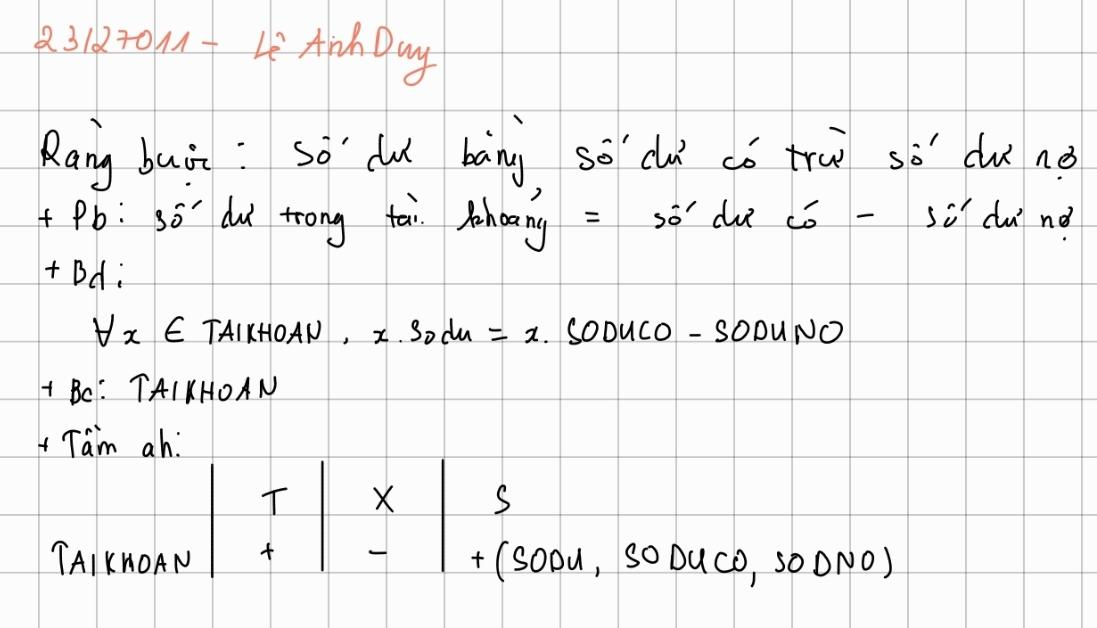 23127011 - Lê Anh Duy
Ràng buộc : số dư bằng số dư có trừ số dư nợ
+ Pb: số dư trong tài khoảng = số dư có - số dư nợ
+ Bd:
∀x ∈ TAIKHOAN, x.Sodu = x.SODUCO - SODUNO
+ Bc: TAIKHOAN
+ Tầm ah:
T X S
TAIKHOAN + - + (SODU, SODUCO, SODNO)